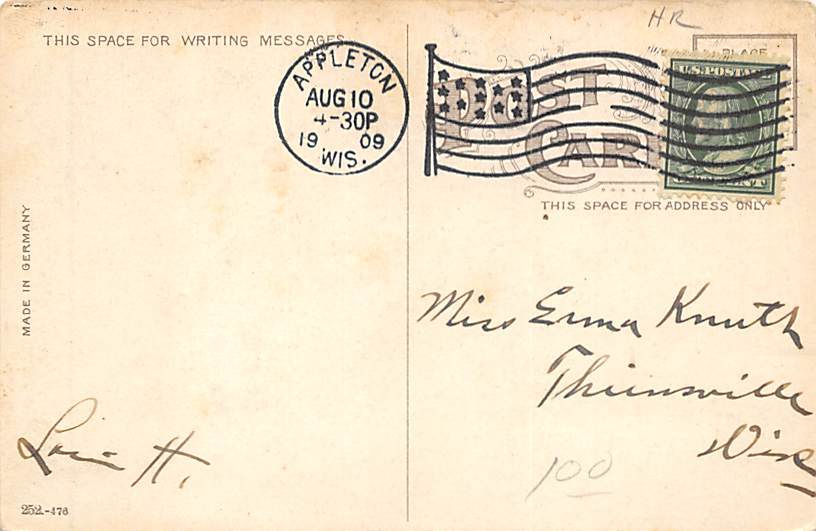 HR
THIS SPACE FOR WRITING MESSAGES
PLACE
APPLETON
AUG 10
4-30P
1909
WIS.
POST
CARD
U.S. POSTAGE
THIS SPACE FOR ADDRESS ONLY
MADE IN GERMANY
Miss Erma Knuth
Thiensville
Wis
Lois H.
100
252-476